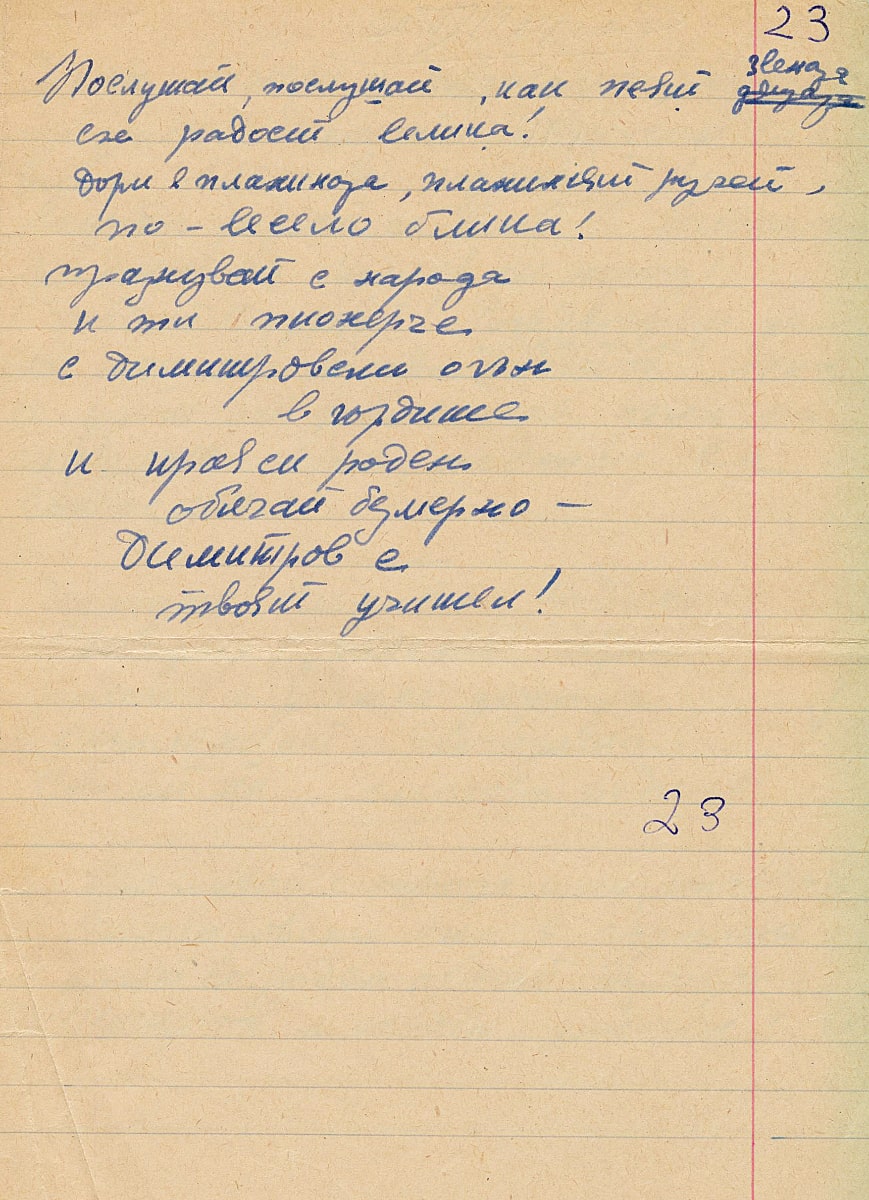 23
Послушай, послушай, как пеят звена̀та
със радост велика!
Дори в планината, планинският ручей,
по-весело блика!
празнувай с народа
и ти пионерче
с димитровски огън
в гърдите
и края си роден
обичай безмерно —
Димитров е
твоят учител!
23